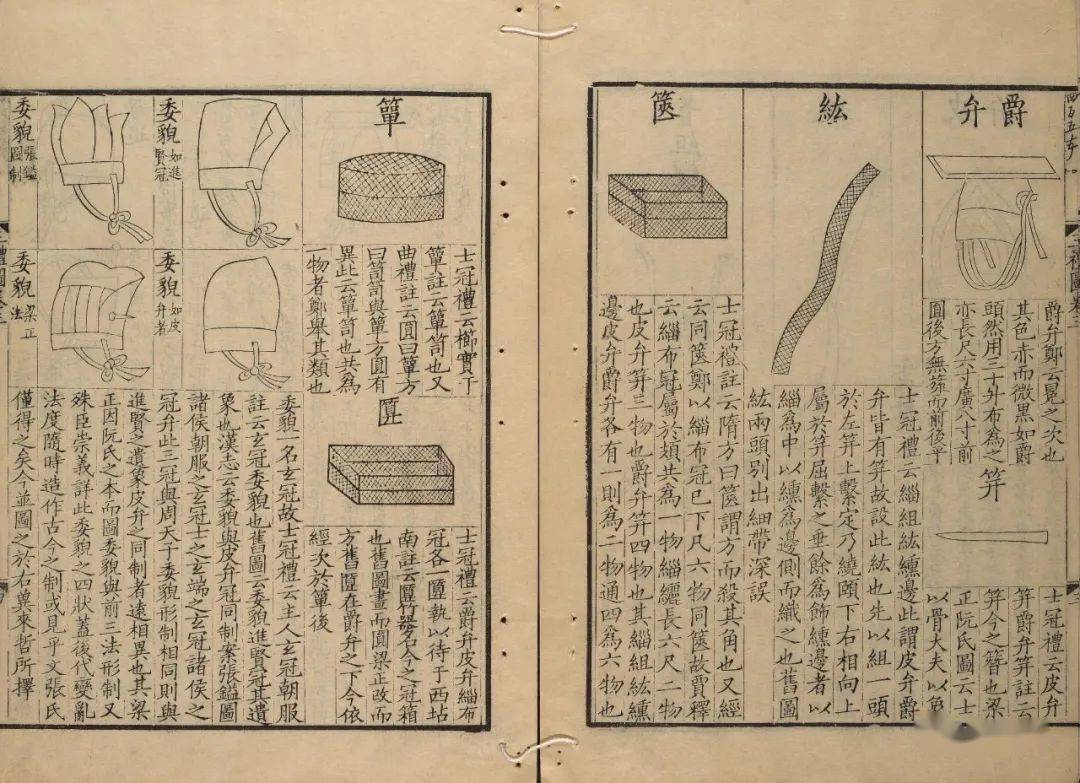 爵弁
爵弁鄭云冕之次也
其色赤而微黑如爵
頭然用三十升布為之
亦長尺六寸廣八寸前
圓後方無旒而前後平
笄
士冠禮云皮弁
笄爵弁笄註云
笄今之簪也梁
正阮氏圖云士
以骨大夫以象
紘
士冠禮云緇組紘纁邊此謂皮弁爵
弁皆有笄故設此紘也先以組一頭
於左笄上繫定乃繞頤下右相向上
屬於笄屈繫之垂餘為飾纁邊者以
緇為中以纁為邊側而織之也舊圖
紘兩頭別出細帶深誤
篋
士冠禮註云隋方曰篋謂方而殺其角也又經
云同篋鄭以緇布冠已下凡六物同篋故賈釋
云緇布冠屬於頍共為一物緇纚長六尺二物
也皮弁笄三物也爵弁笄四物也其緇組紘纁
邊皮弁爵弁各有一則為二物通四為六物也
簞
士冠禮云櫛實于
簞註云簞笥也又
曲禮註云圓曰簞方
曰笥笥與簞方圓有
異此云簞笥也共為
一物者鄭舉其類也
匴
士冠禮云爵弁皮弁緇布
冠各一匴執以待于西坫
南註云匴竹器名今之冠箱
也舊圖畫而圓梁正改而
方舊匴在爵弁之下今依
經次於簞後
委貌
如進
賢冠
委貌
張鎰
圖制
委貌
如皮
弁者
委貌
梁正
法
委貌一名玄冠故士冠禮云主人玄冠朝服
註云玄冠委貌也舊圖云委貌進賢冠其遺
象也漢志云委貌與皮弁冠同制案張鎰圖
諸侯朝服之玄冠士之玄端之玄冠諸侯之
冠弁此三冠與周天子委貌形制相同則與
進賢之遺象皮弁之同制者遠相異也其梁
正因阮氏之本而圖委貌與前三法形制又
殊臣崇義詳此委貌之四狀蓋後代變亂
法度隨時造作古今之制或見乎文張氏
僅得之矣今並圖之於右冀來哲所擇